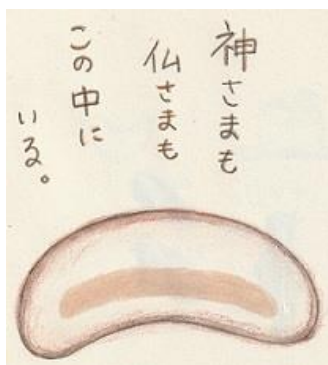 神さまも
仏さまも
この中に
いる。